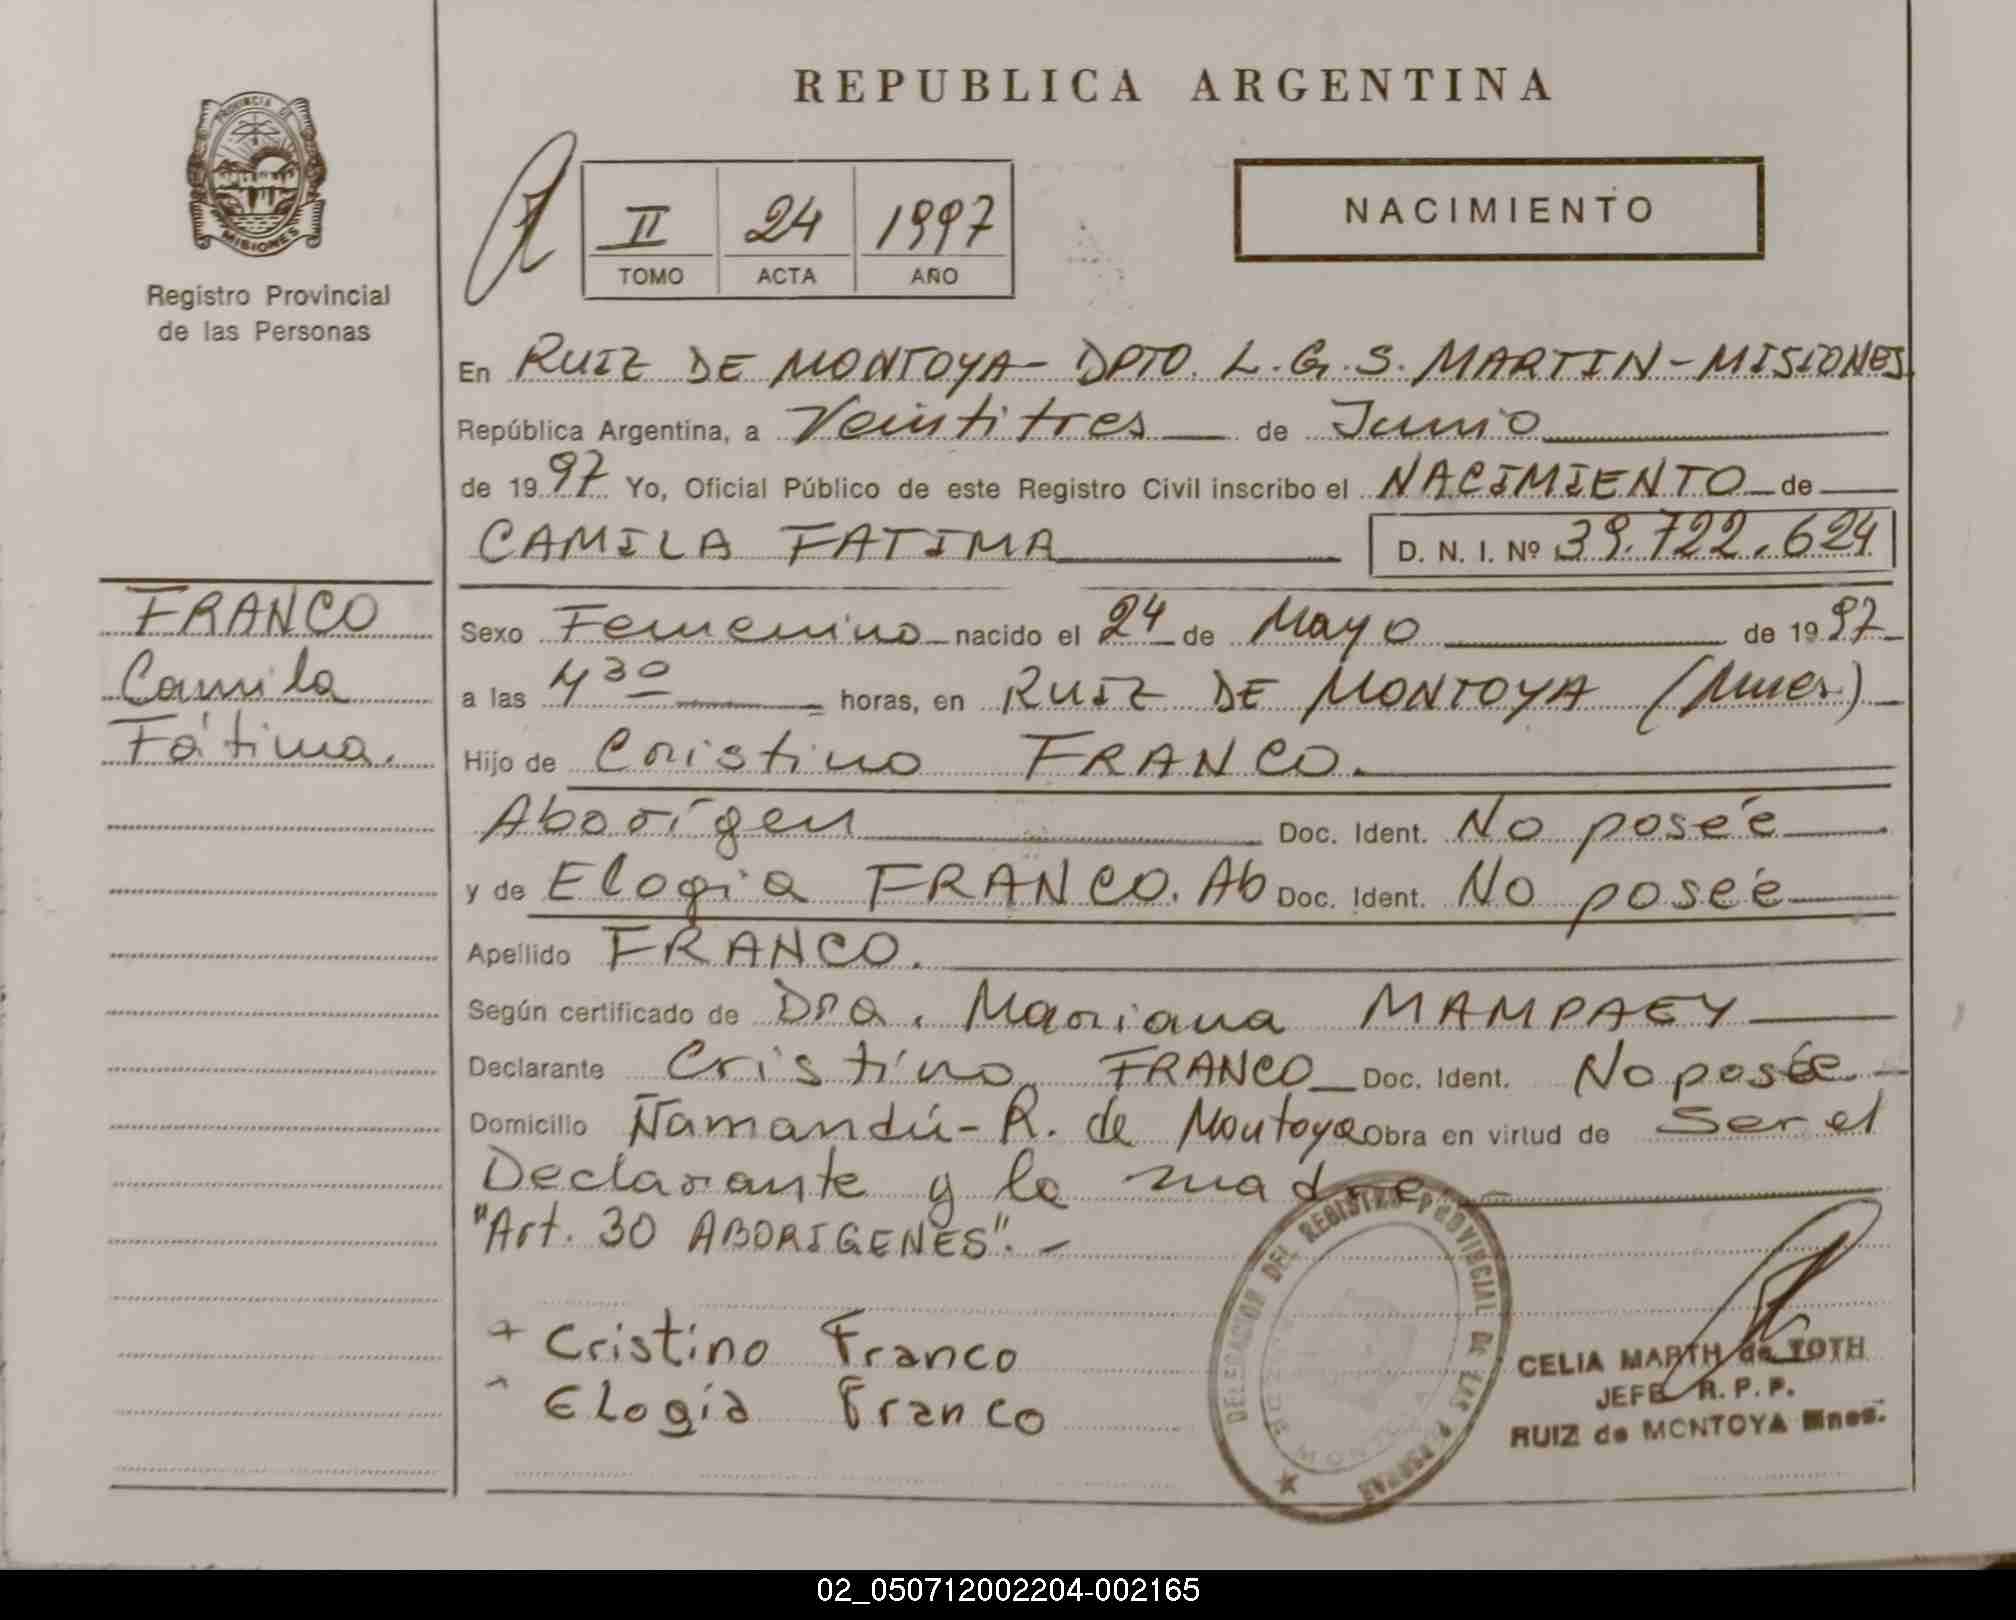 REPUBLICA ARGENTINA
PROVINCIA DE
MISIONES
Registro Provincial
de las Personas
II 24 1997
TOMO ACTA AÑO
NACIMIENTO
En RUIZ DE MONTOYA - DPTO. L.G.S. MARTIN - MISIONES
República Argentina, a Veintitres de Junio
de 1997 Yo, Oficial Público de este Registro Civil inscribo el NACIMIENTO de
CAMILA FATIMA D. N. I. Nº 39.722.624
FRANCO
Camila
Fátima.
Sexo Femenino nacido el 24 de Mayo de 1997
a las 4 30 horas, en RUIZ DE MONTOYA (Mnes)
Hijo de Cristino FRANCO.
Aborígen Doc. Ident. No posée
y de Elogia FRANCO. Ab Doc. Ident. No posée
Apellido FRANCO.
Según certificado de Dra. Mariana MAMPAEY
Declarante Cristino FRANCO Doc. Ident. No posée
Domicilio Ñamandú - R. de Montoya Obra en virtud de Ser el
Declarante y la madre
"Art. 30 ABORIGENES". -
+ Cristino Franco
Elogia Franco
DELEGACION DEL REGISTRO PROVINCIAL DE LAS PERSONAS
CELIA MARTH de TOTH
JEFE R. P. P.
RUIZ de MONTOYA Mnes.
02_050712002204-002165